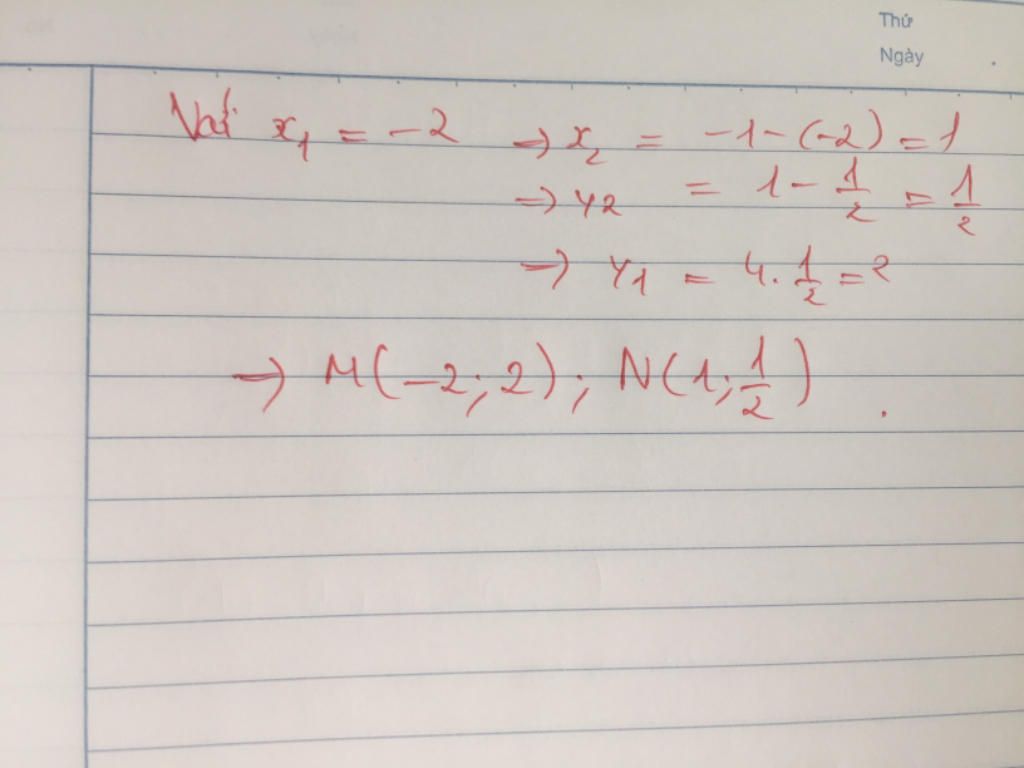 Thứ
Ngày
Với x₁ = -2 → x₂ = -1-(-2) = 1
→ y2 = 1 - 1/2 = 1/2
→ y1 = 4. 1/2 = 2
→ M(-2; 2); N(1; 1/2).